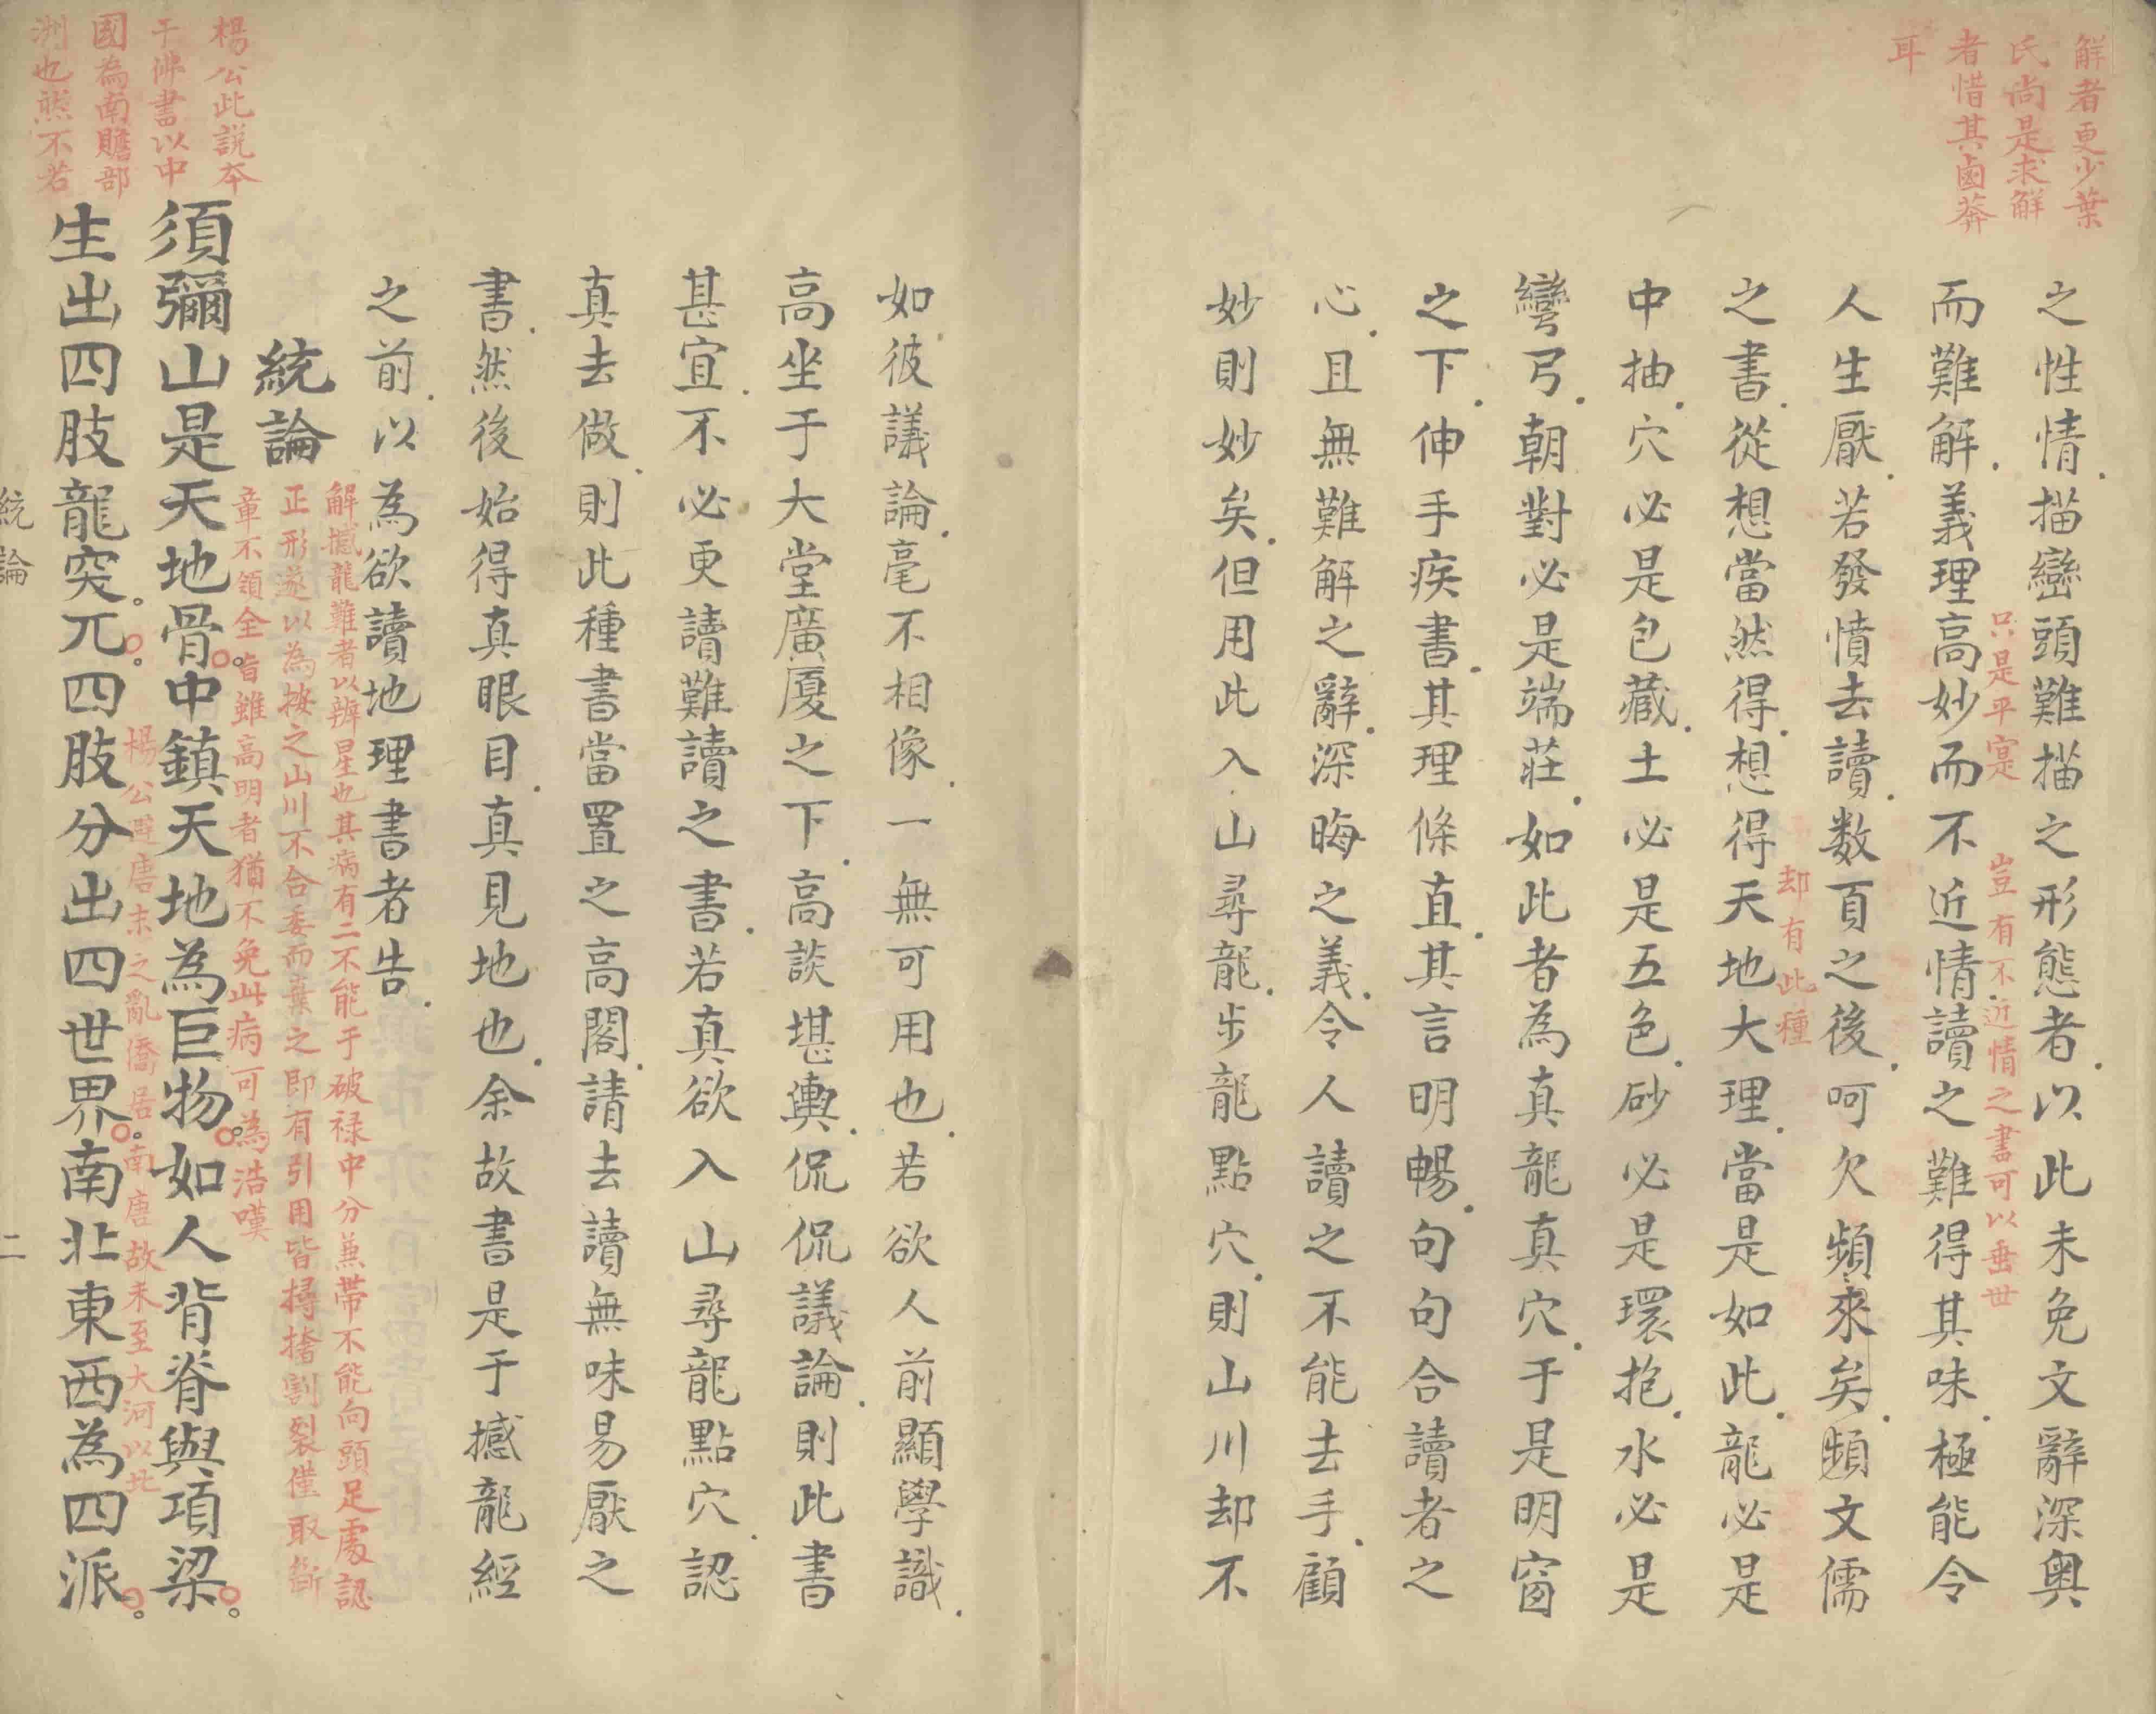 解者更少葉
氏尚是求解
者惜其鹵莽
耳
之性情描巒頭難描之形態者以此未免文辭深奧
只是平寔
豈有不近情之書可以垂世
而難解義理高妙而不近情讀之難得其味極能令
人生厭若發憤去讀数頁之後呵欠頻來矣頻文儒
却有此種
之書從想當然得想得天地大理當是如此龍必是
中抽穴必是包藏土必是五色砂必是環抱水必是
彎弓朝對必是端莊如此者為真龍真穴于是明窗
之下伸手疾書其理條直其言明暢句句合讀者之
心且無難解之辭深晦之義令人讀之不能去手顧
妙則妙矣但用此入山尋龍步龍點穴則山川却不
如彼議論毫不相像一無可用也若欲人前顯學識
高坐于大堂廣廈之下高談堪輿侃侃議論則此書
甚宜不必更讀難讀之書若真欲入山尋龍點穴認
真去做則此種書當置之高閣請去讀無味易厭之
書然後始得真眼目真見地也余故書是于撼龍經
之前以為欲讀地理書者告
統論
解撼龍難者以辨星也其病有二不能于破禄中分兼帶不能向頭足處認
正形遂以為按之山川不合委而棄之即有引用皆撏撦割裂僅取斷
章不領全旨雖高明者猶不免此病可為浩嘆
楊公此說本
于佛書以中
國為南贍部
洲也然不若
須彌山是天地骨中鎮天地為巨物如人背脊與項梁
楊公避唐末之亂僑居南唐故未至大河以北
生出四肢龍突兀四肢分出四世界南北東西為四派
統論
二